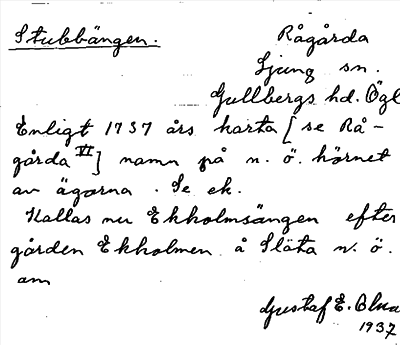 Stubbängen. Rågårda
Ljung sn.
Gullbergs hd. Ögl
Enligt 1737 års karta [se Rå-
gårda VI] namn på n. ö. hörnet
av ägorna. Se ek.
Kallas nu Ekholmsängen efter
gården Ekholmen å Släta n. ö.
om
Gustaf E.
1937